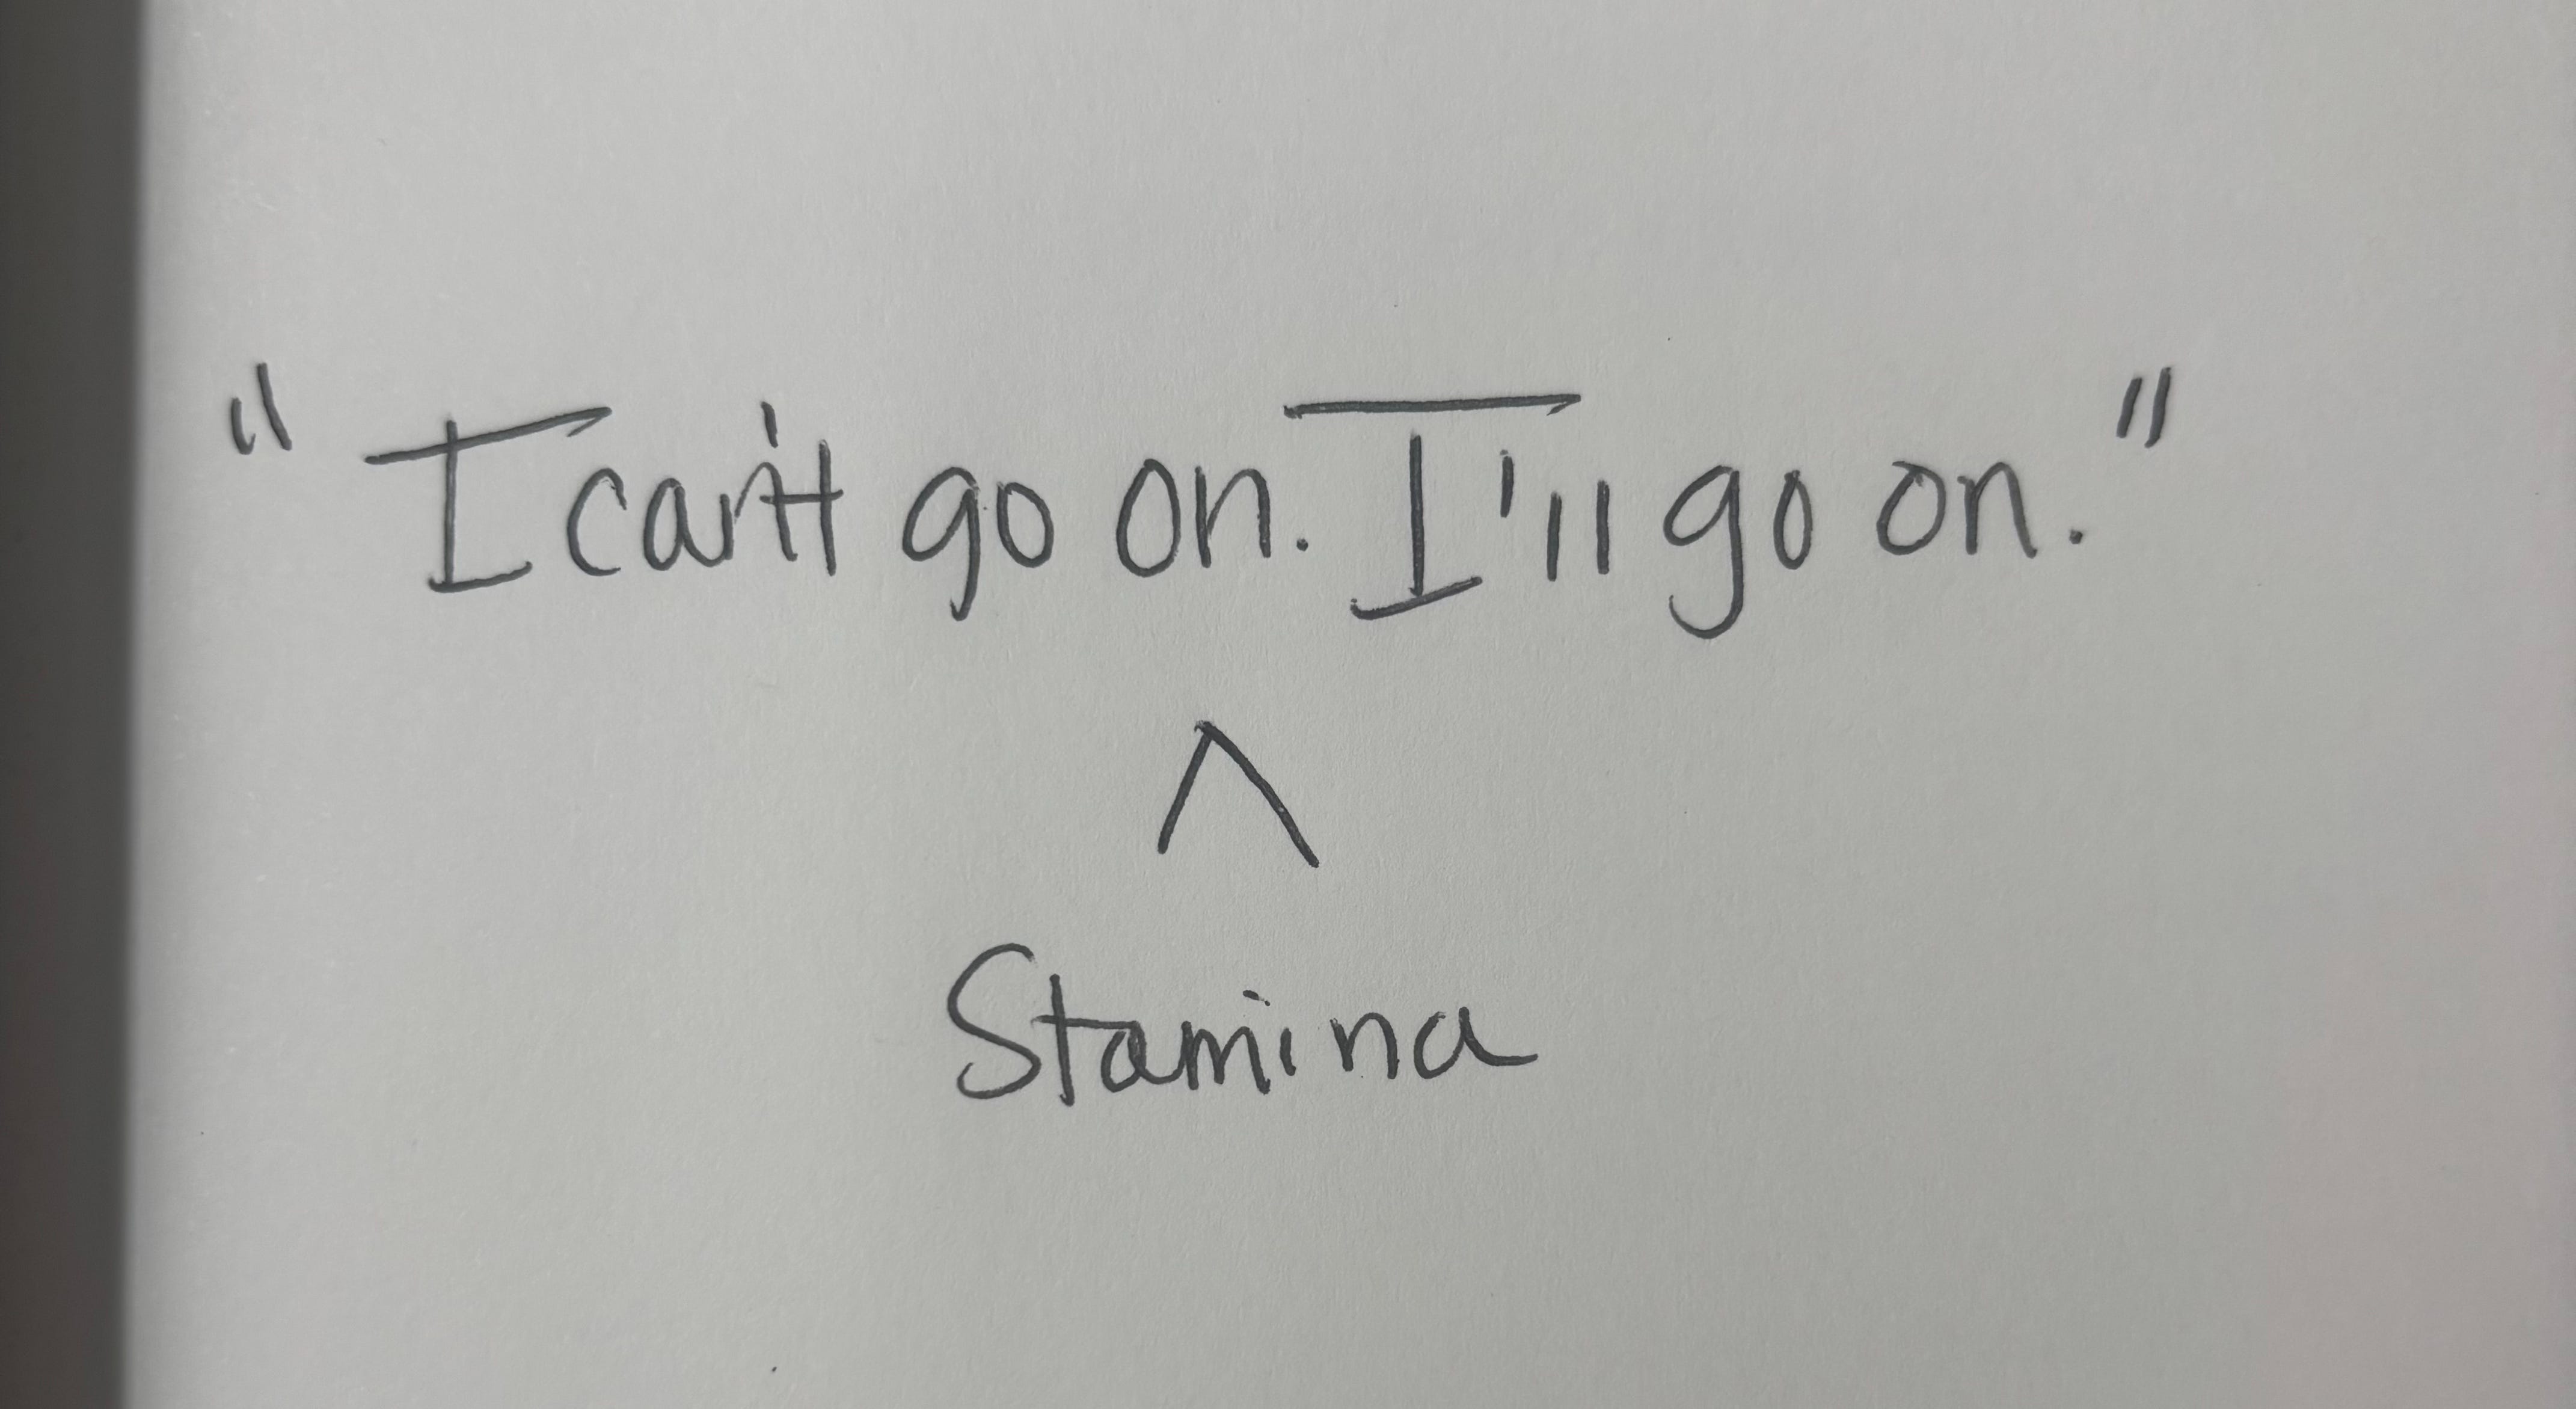 "I can't go on. I'll go on."
^
Stamina